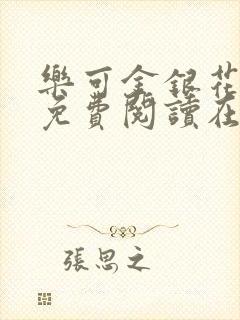 樂可金銀花
免費閱讀在
張思之